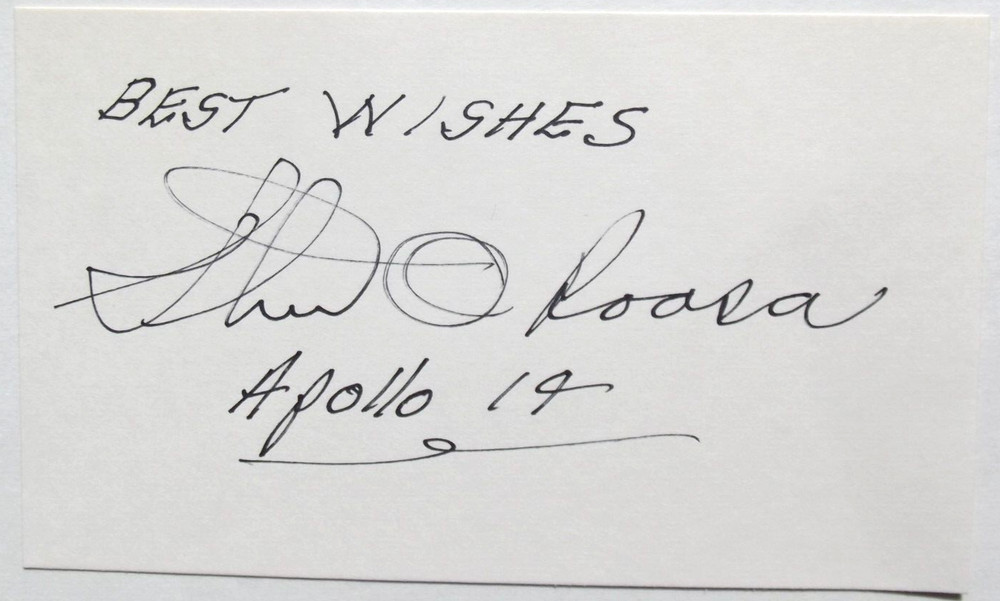 BEST WISHES
Stuart A Roosa
Apollo 14